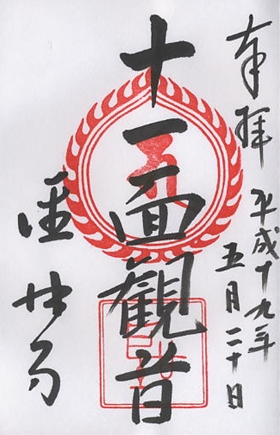 奉拝
平成十九年
五月二十日
十一面観音